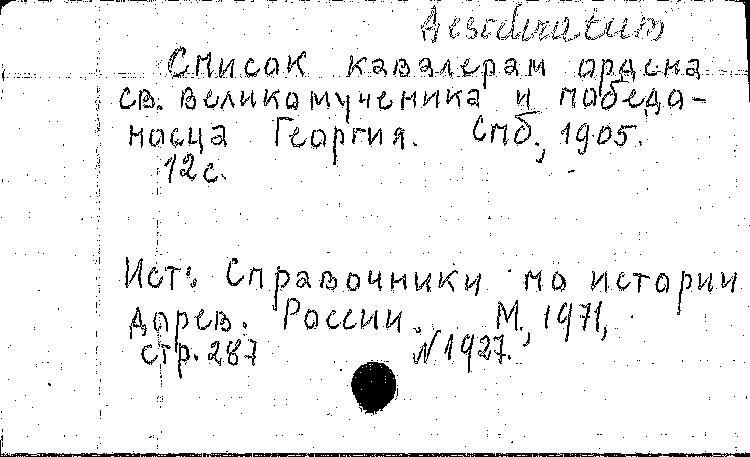 Desideratum
Список кавалерам ордена
св. великомученика и победо-
носца Георгия. Спб., 1905.
12 с.
Ист: Справочники по истории
дорев. России. М., 1971,
стр. 287 N 1927.